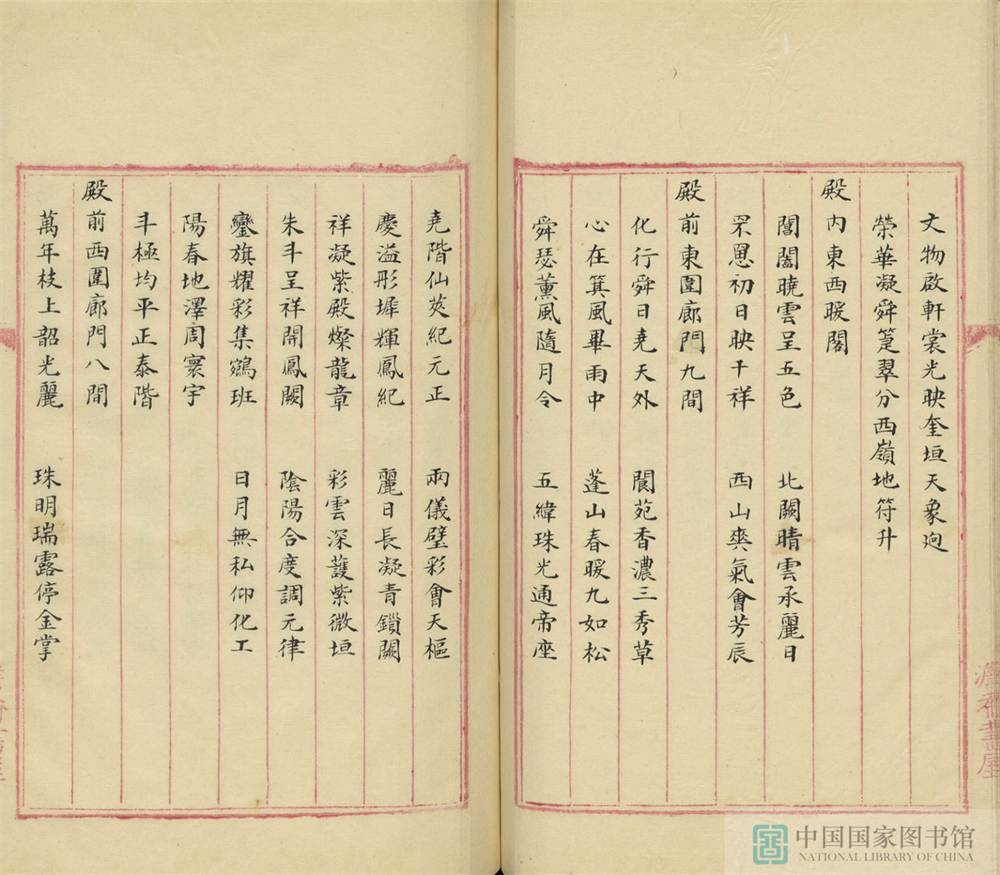 文物啟軒裳光映奎垣天象迥
榮華凝舜蓂翠分西嶺地符升
殿內東西暖閣
閶闔曉雲呈五色 北闕晴雲承麗日
罘罳初日映千祥 西山爽氣會芳辰
殿前東圍廊門九間
化行舜日堯天外 閬苑香濃三秀草
心在箕風畢雨中 蓬山春暖九如松
舜瑟薰風隨月令 五緯珠光通帝座
堯階仙莢紀元正 兩儀璧彩會天樞
慶溢彤墀輝鳳紀 麗日長凝青鎖闕
祥凝紫殿燦龍章 彩雲深護紫微垣
朱斗呈祥開鳳闕 陰陽合度調元律
鑾旗耀彩集鵷班 日月無私仰化工
陽春地澤周寰宇
斗極均平正泰階
殿前西圍廊門八間
萬年枝上韶光麗 珠明瑞露停金掌
中国国家图书馆
NATIONAL LIBRARY OF CHINA